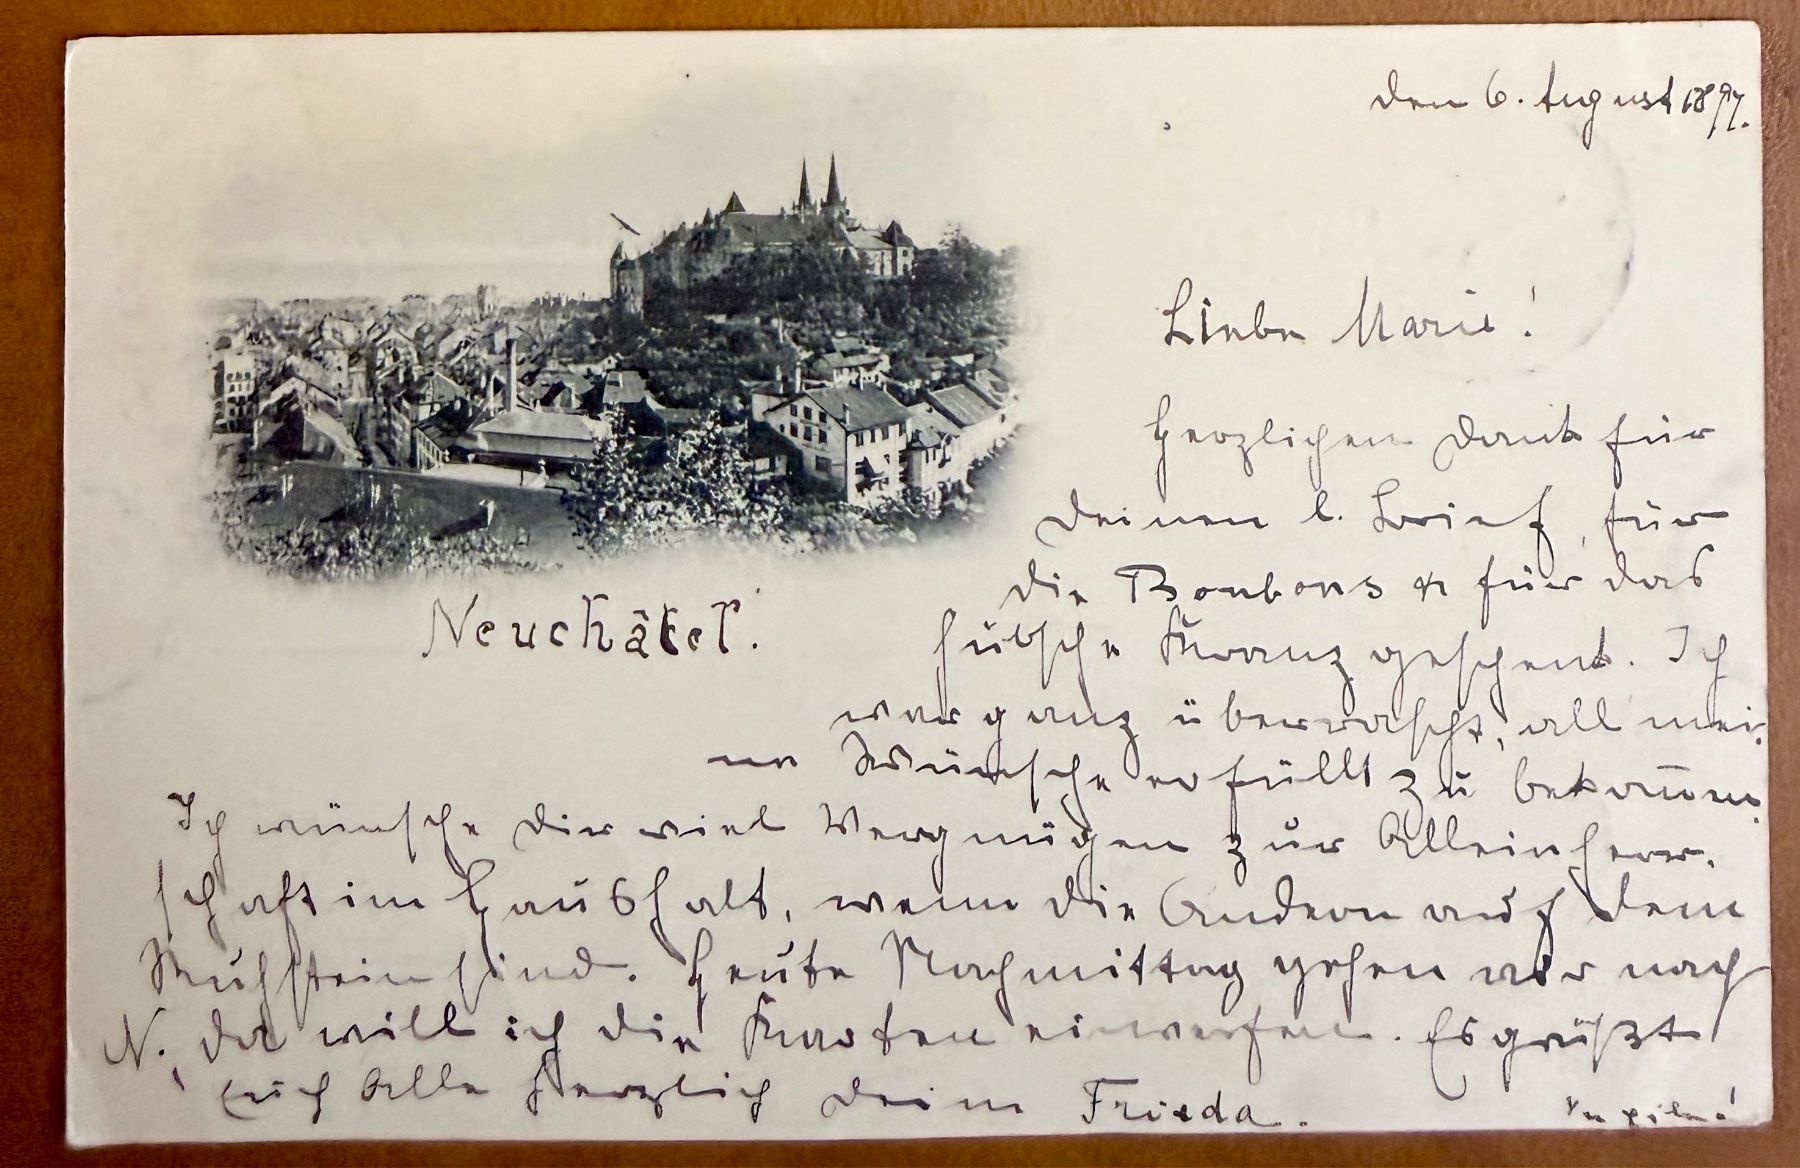 den 6. August 1897.
Liebe Marie!
Herzlichen Dank für
Deinen l. Brief, für
die Bonbons & für das
hübsche Kranzgeschenk. Ich
war ganz überrascht, all mei-
ne Wünsche erfüllt zu bekom̅en.
Neuchâtel.
Ich wünsche Dir viel Vergnügen zur Alleinherr-
schaft im Haushalt, wenn die Andern auf dem
sind. Heute Nachmittag gehen wir nach
N., da will ich die Karten einwerfen. Es grüßt
Euch Alle herzlich Deine Frieda.